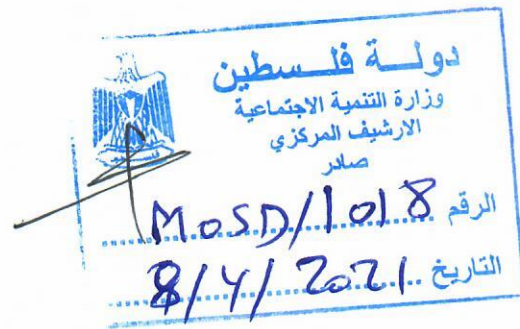 دولة فلسطين
وزارة التنمية الاجتماعية
الارشيف المركزي
صادر
الرقم MOSD/1018
التاريخ 8/4/2021